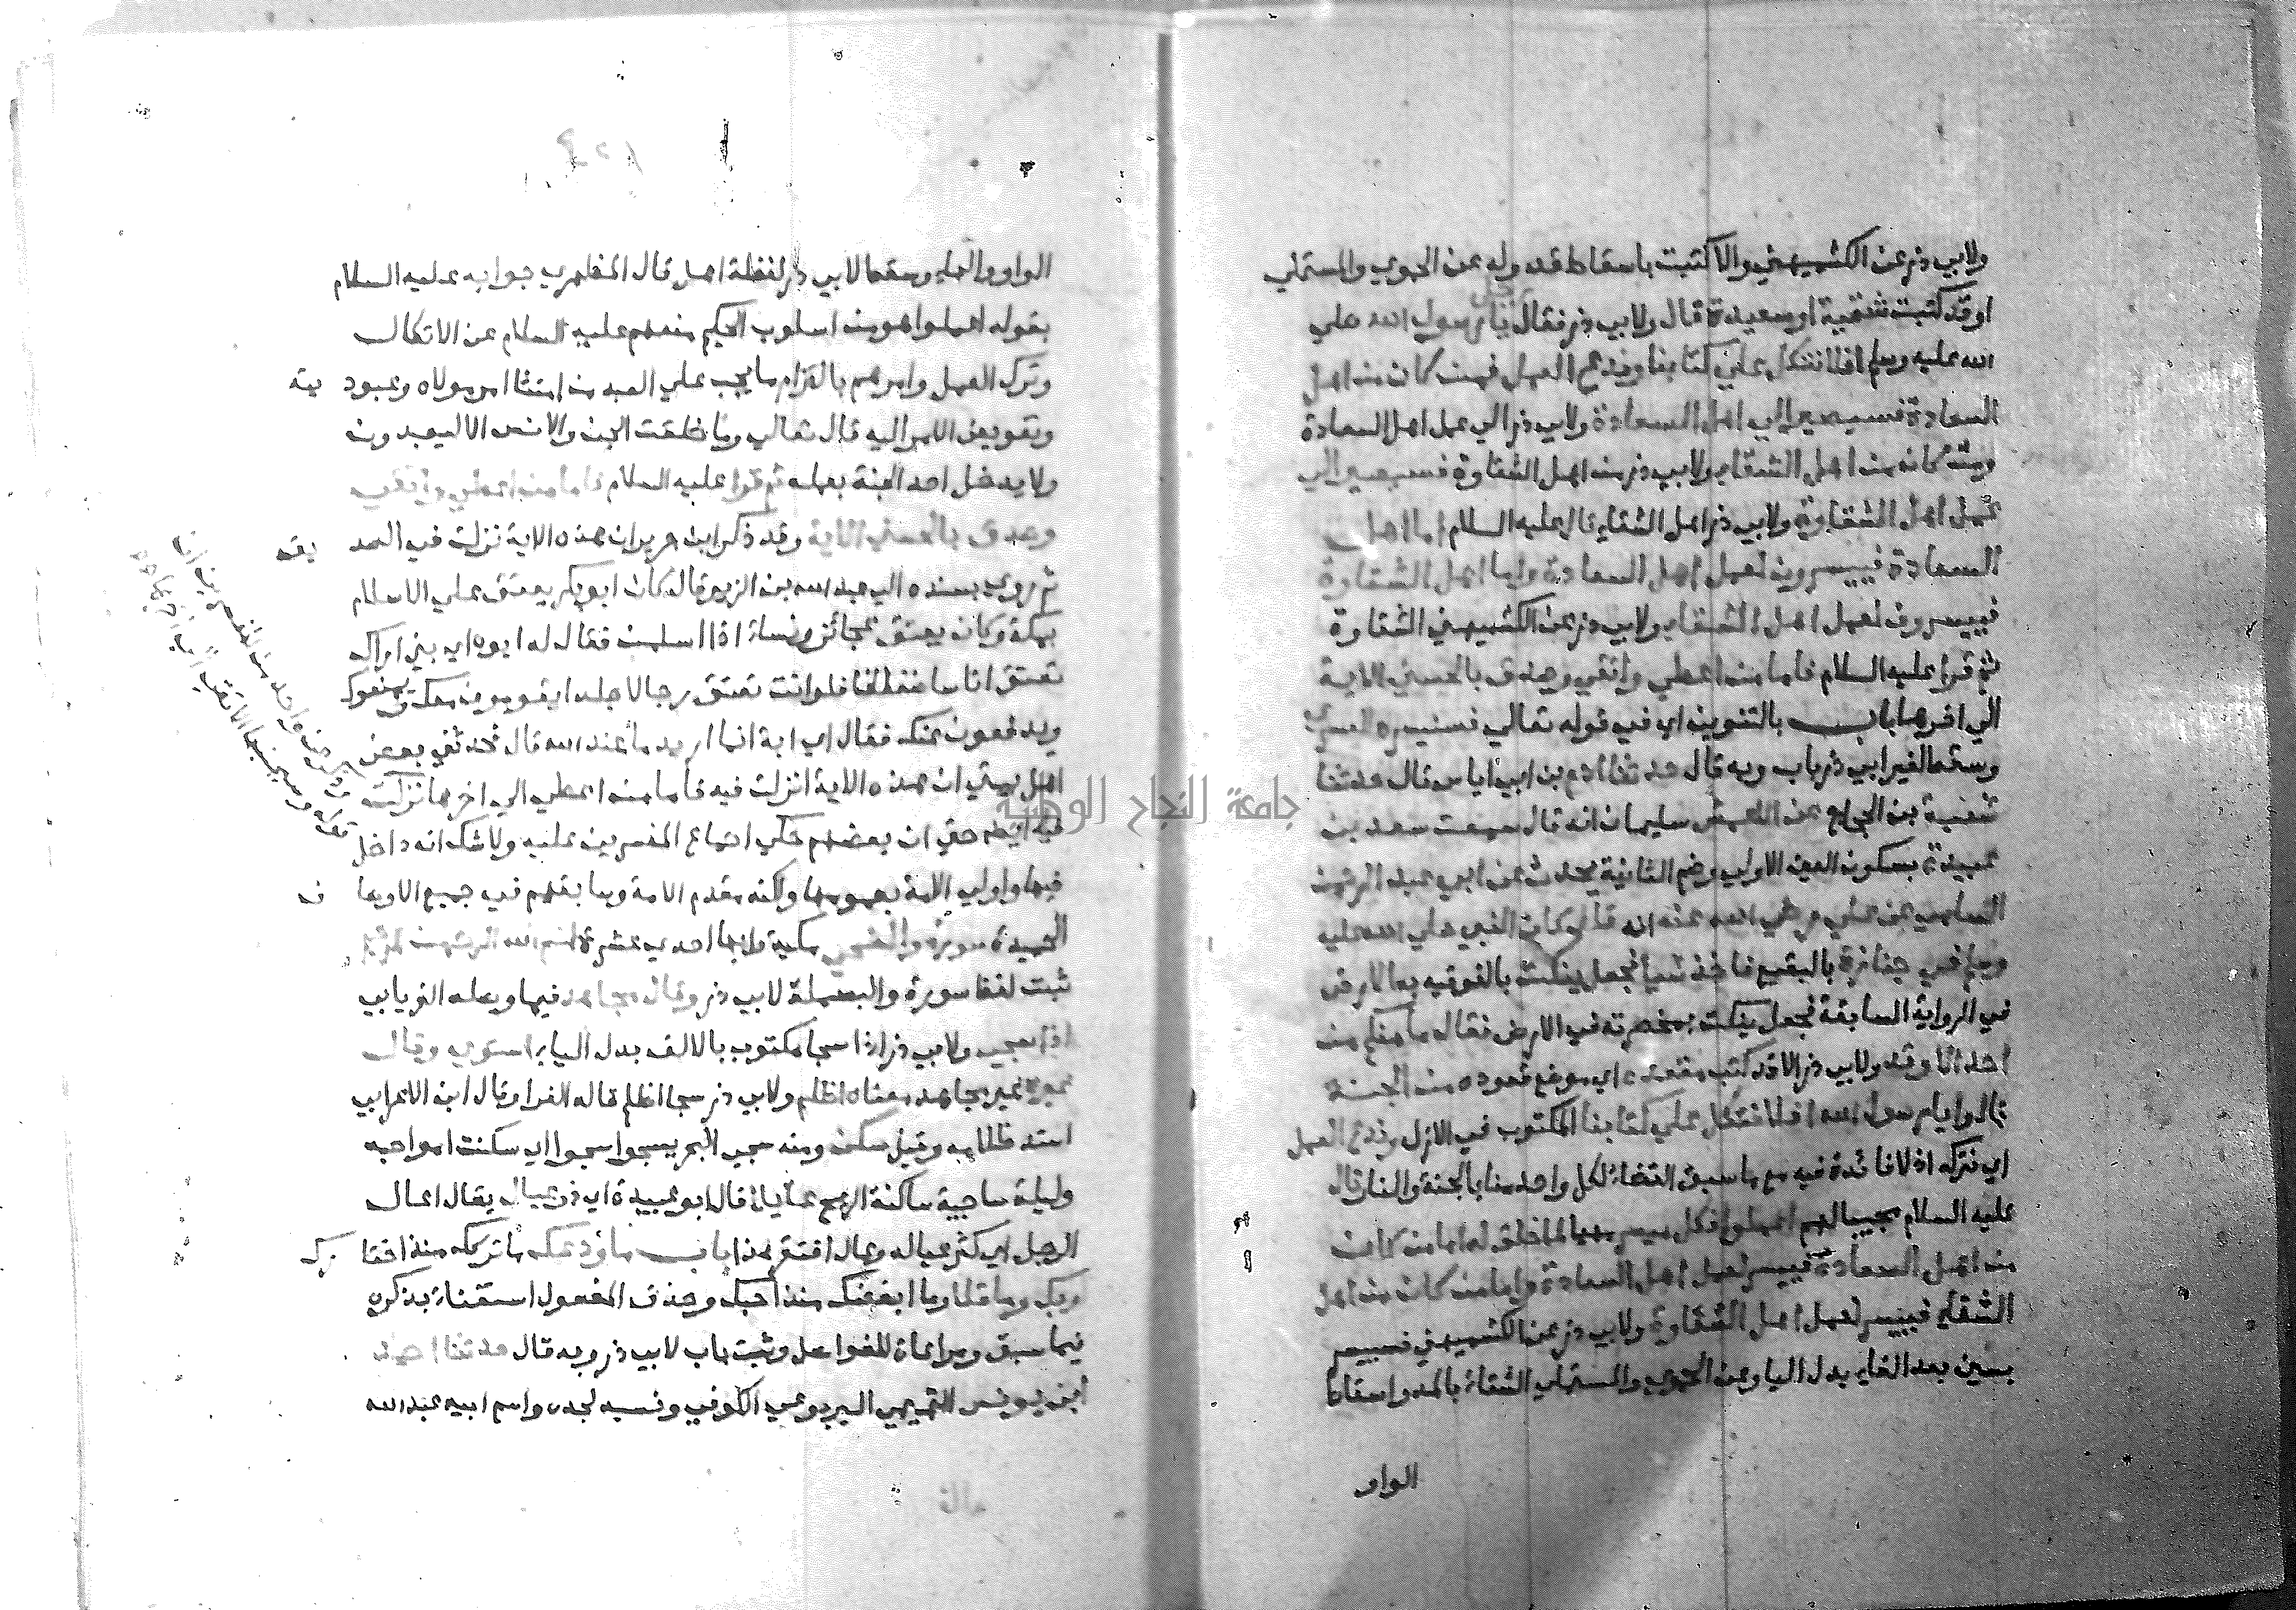 ولابي ذر عن الكشميهني والا كتبت باسقاط قد وله عن الحموي والمستملي
او قد كتبت شقية او سعيدة قال ولابي ذر فقال رجل يا رسول الله صلي
الله عليه وسلم افلا نتكل علي كتابنا وندع العمل فمن كان من اهل
السعادة فسيصير الي اهل السعادة ولابي ذر الي عمل اهل السعادة
ومن كان من اهل الشقاء ولابي ذر من اهل الشقاوة فسيصير الي
عمل اهل الشقاوة ولابي ذر اهل الشقاء قال عليه السلام اما اهل
السعادة فييسرون لعمل اهل السعادة واما اهل الشقاوة
فييسرون لعمل اهل الشقاء ولابي ذر عن الكشميهني الشقاوة
ثم قرا عليه السلام فاما من اعطي واتقي وصدق بالحسني الاية
الي اخرها باب بالتنوين اي في قوله تعالي فسنيسره للعسري
وسقط لغير ابي ذر باب وبه قال حدثنا ادم بن ابي اياس قال حدثنا
شعبة بن الحجاج عن الاعمش سليمان انه قال سمعت سعد بن
عبيدة بسكون العين الاولي وضم الثانية يحدث عن ابي عبد الرحمن
السلمي عن علي رضي الله عنه انه قال كان النبي صلي الله عليه
وسلم في جنازة بالبقيع فاخذ شيا فجعل ينكت بالفوقيه به الارض
في الرواية السابقة فجعل ينكت بمخصرته في الارض فقال ما منكم من
احد الا وقد ولابي ذر الا قد كتب مقعده اي موضع قعوده من الجنة
قالوا يا رسول الله افلا نتكل علي كتابنا المكتوب في الازل وندع العمل
اي نتركه اذ لا فائدة فيه مع ما سبق القضاء لكل واحد منا بالجنة والنار قال
عليه السلام مجيبا لهم اعملوا فكل ميسر مهيا لما خلق له اما من كان
من اهل السعادة فييسر لعمل اهل السعادة واما من كان من اهل
الشقاء فييسر لعمل اهل الشقاوة ولابي ذر عن الكشميهني فسييسر
بسين بعد الفاء بدل الياء وعن الحموي والمستملي الشقاء بالمد واسقاط
الواو
الواو والهاء وسقط لابي ذر لفظة اهل قال المظهري جوابه عليه السلام
بقوله اعملوا هو من اسلوب الحكيم منعهم عليه السلام عن الاتكال
وترك العمل وامرهم بالتزام ما يجب علي العبد من امتثال امر مولاه وعبود يته
وتفويض الامر اليه قال تعالي وما خلقت الجن والانس الا ليعبدون
ولا يدخل احد الجنة بعمله ثم قرا عليه السلام فاما من اعطي واتقي
وصدق بالحسني الاية وقد ذكر ابن جرير ان هذه الاية نزلت في الصد يق
ثم روي بسنده الي عبد الله بن الزبير قال كان ابو بكر يعتق علي الاسلام
بمكة وكان يعتق عجائز ونساء اذا اسلمن فقال له ابوه اي بني اراك
تعتق اناسا ضعفا فلو انت تعتق رجالا جلدا يقومون معك ويمنعوك
ويدفعون عنك فقال اي ابة انما اريد ما عند الله قال فحدثني بعض
اهل بيتي ان هذه الاية انزلت فيه فاما من اعطي الي اخرها نزلت
فيه ايضا حتي ان بعضهم حكي اجماع المفسرين عليه ولا شك انه داخل
فيها واولي الامة بعمومها ولكنه مقدم الامة وسابقهم في جميع الاوصا ف
الحميدة سورة والضحي مكية وايها احدي عشرة بسم الله الرحمن الرحيم
ثبت لفظ سورة والبسملة لابي ذر وقال مجاهد فيما وصله الفريابي
اذا سجي ولابي ذر اذا سجا مكتوب بالالف بدل الياء استوي وقال
غيره غير مجاهد معناه اظلم ولابي ذر سجا اظلم قاله الفرا وقال ابن الاعرابي
اشتد ظلامه وقيل سكن ومنه سجي البحر يسجوا سجوا اي سكنت امواجه
وليلة ساجية ساكنة الريح عائلا قال ابو عبيدة اي ذو عيال يقال اعال
الرجل اي كثر عياله وعال افتقر هذا باب ما ودعك ما تركك منذ اختا رك
ربك وما قلا وما ابغضك منذ احبك وحذف المفعول استغناء بذكره
فيما سبق ومراعاة للفواصل وثبت باب لابي ذر وبه قال حدثنا احمد
ابن يونس التميمي اليربوعي الكوفي ونسبه لجده واسم ابيه عبد الله
جامعة النجاح الوطنية